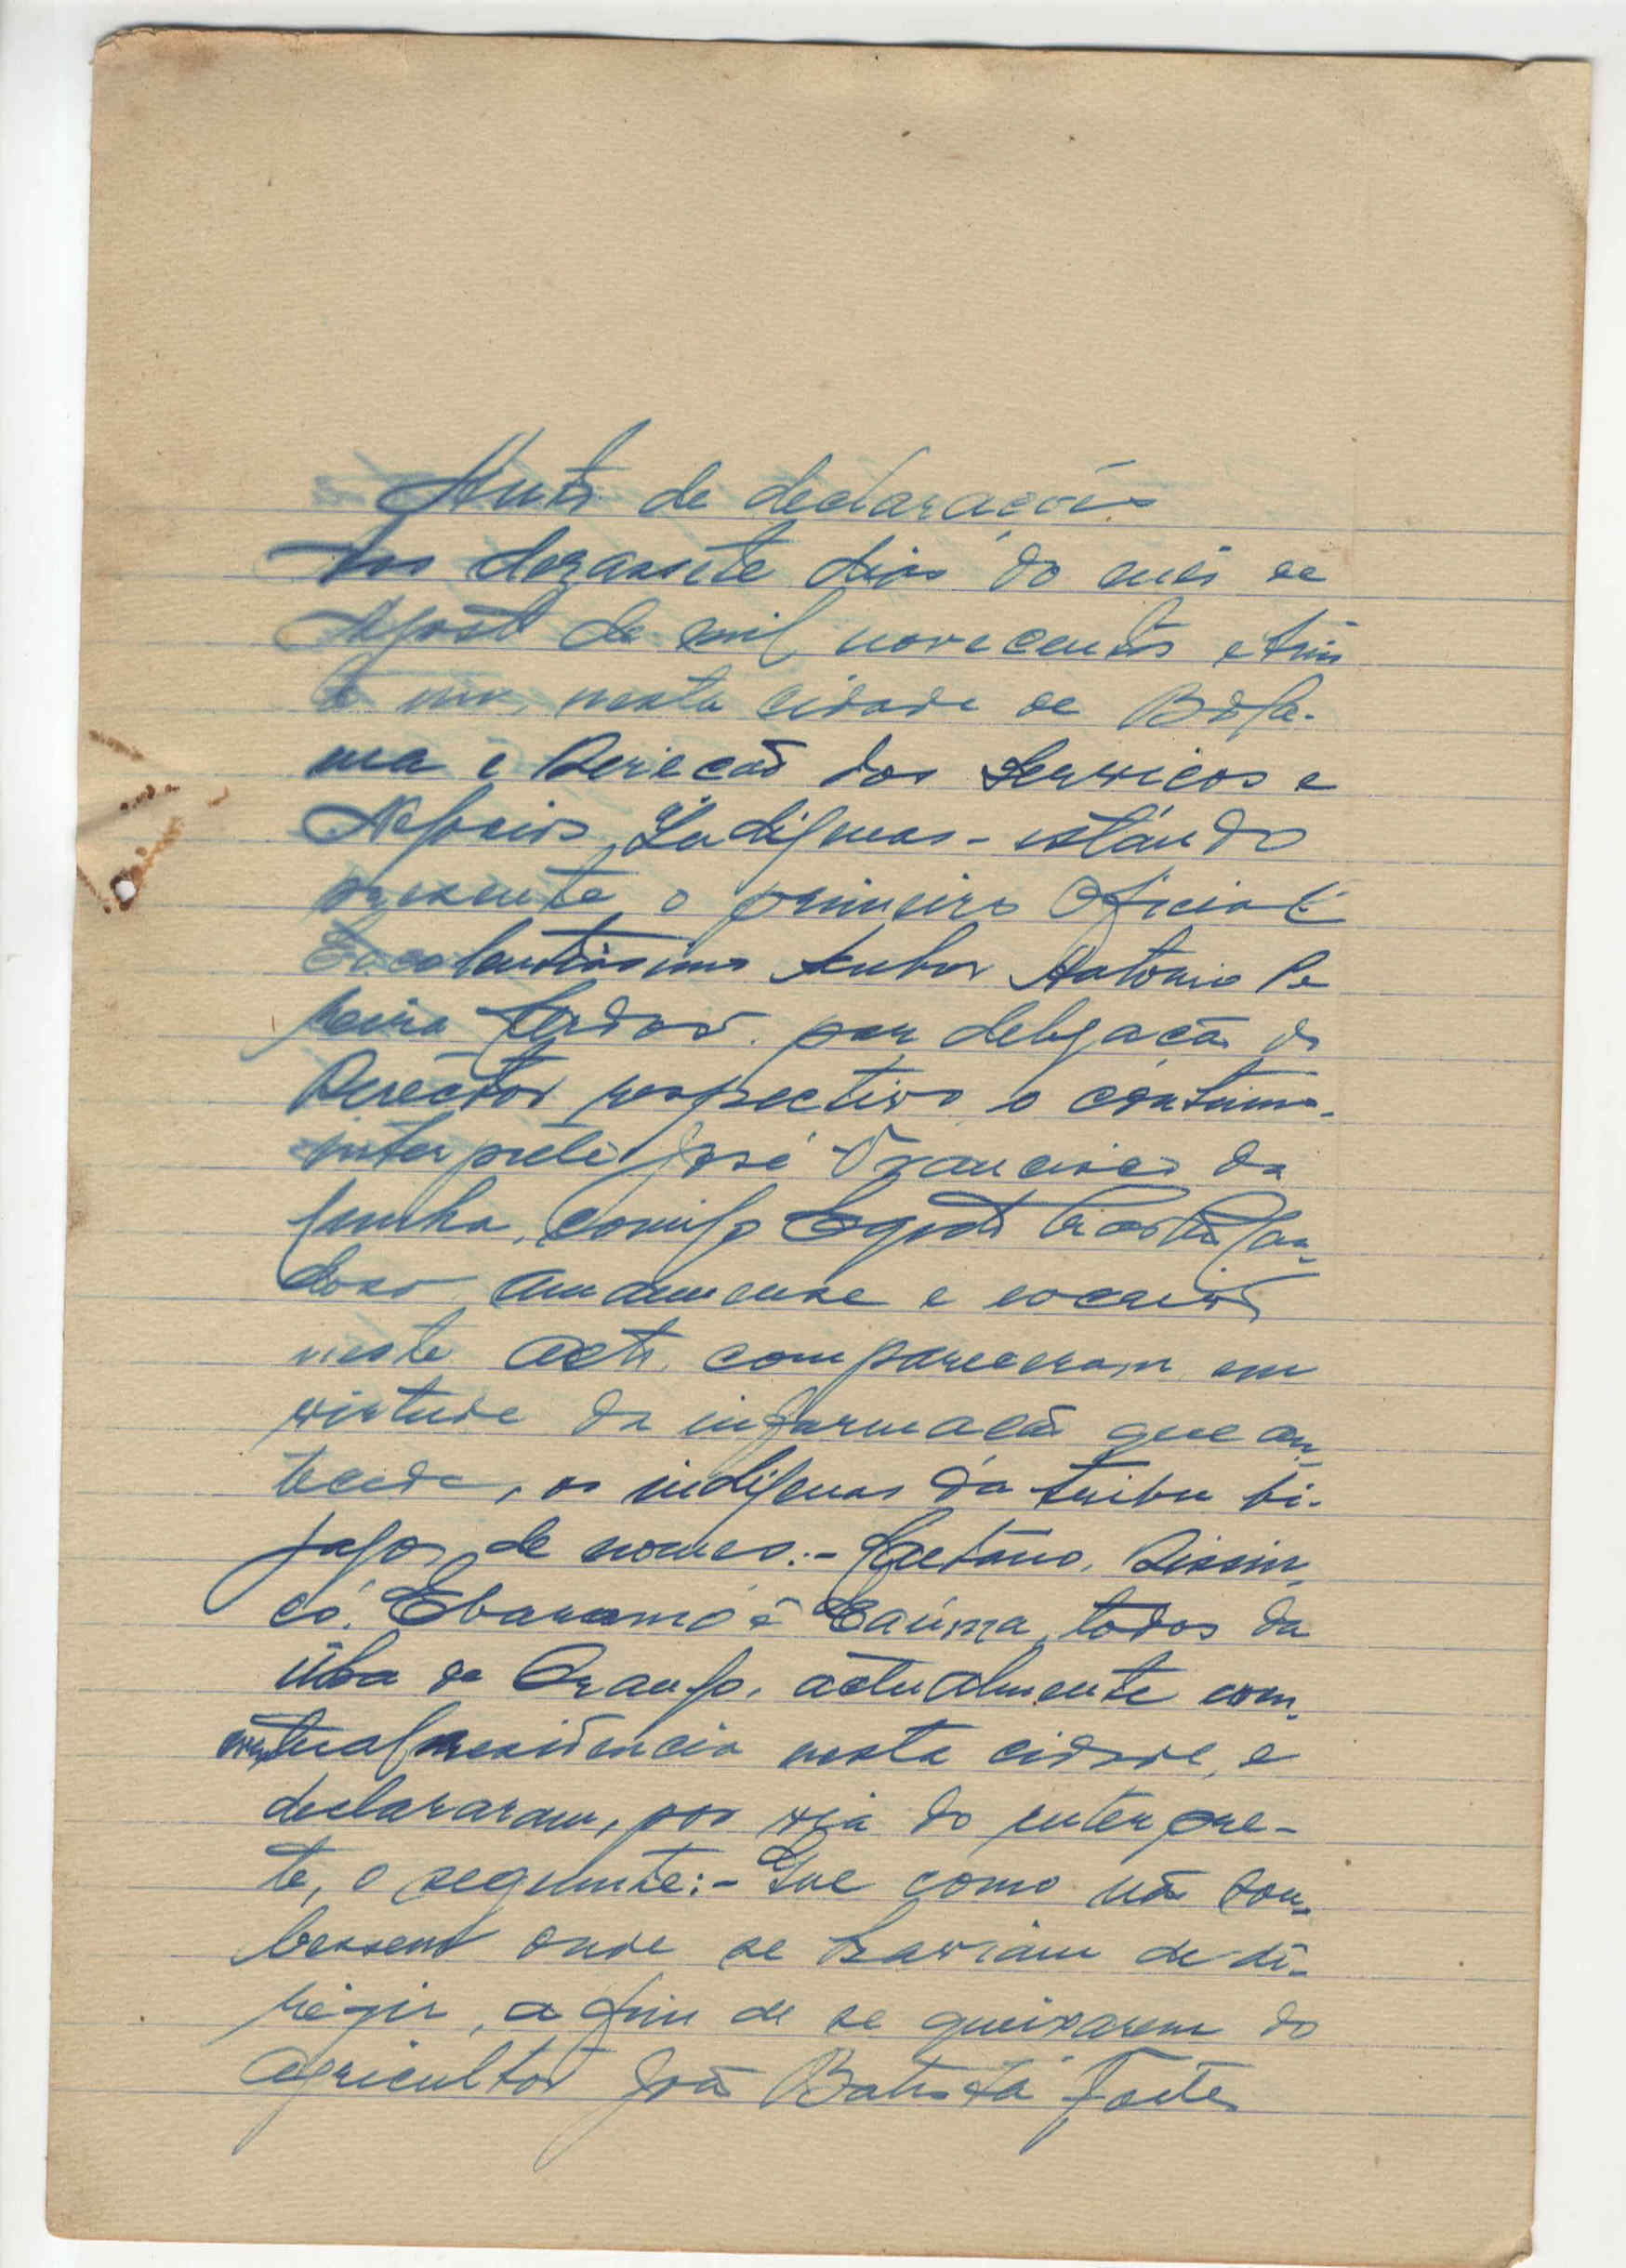 Auto de declarações
Aos dezassete dias do mês de
Agosto de mil novecentos e trin
ta um, nesta cidade de Bola-
ma e Direcção dos Serviços e
Negocios Indígenas - estando
presente o primeiro Oficial
Excelentissimo Senhor Antonio Pe
reira Cardoso. por delegação do
Director respectivo o contínuo-
interprete José Francisco da
Cunha, comigo Car-
doso amanuense e escrivão
neste acto. compareceram em
virtude da informação que an-
tecede, os indígenas da tribu bi-
jagoz de nomes:- Caetano,
todos da
ilha de Orango, actualmente com
eventual residencia nesta cidade, e
declararam, por via do interpre-
te, o seguinte:- Que como não sou-
bessem onde se haviam de di-
rigir, a fim de se queixarem do
agricultor João Batista Fortes